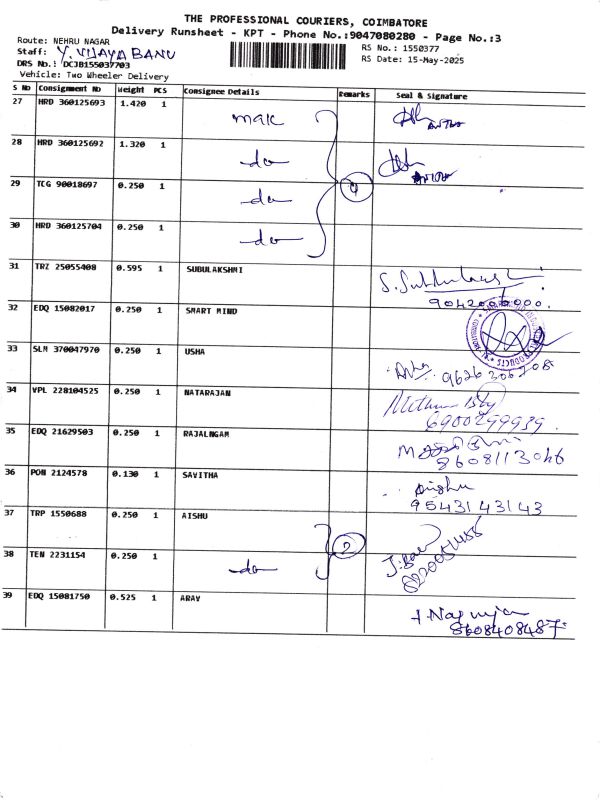 THE PROFESSIONAL COURIERS, COIMBATORE
Delivery Runsheet - KPT - Phone No.:9047080280 - Page No.:3
Route: NEHRU NAGAR
RS No.: 1550377
Staff: Y. VIJAYA BANU
RS Date: 15-May-2025
DRS No.: DCJB155037703
Vehicle: Two Wheeler Delivery
S No Consignment No Weight PCS Consignee Details Remarks Seal & Signature
27 HRD 360125693 1.420 1
28 HRD 360125692 1.320 1 do
29 TCG 90018697 0.250 1 do
30 HRD 360125704 0.250 1 do
31 TRZ 25055408 0.595 1 SUBULAKSHMI
32 EDQ 15082017 0.250 1 SMART MIND
33 SLM 370047970 0.250 1 USHA 9626306208
34 VPL 228104525 0.250 1 NATARAJAN
35 EDQ 21629503 0.250 1 RAJALNGAM
36 PON 2124578 0.130 1 SAVITHA
9543143143
37 TRP 1550688 0.250 1 AISHU
38 TEN 2231154 0.250 1 do 2
39 EDQ 15081750 0.525 1 ARAV
8608408487